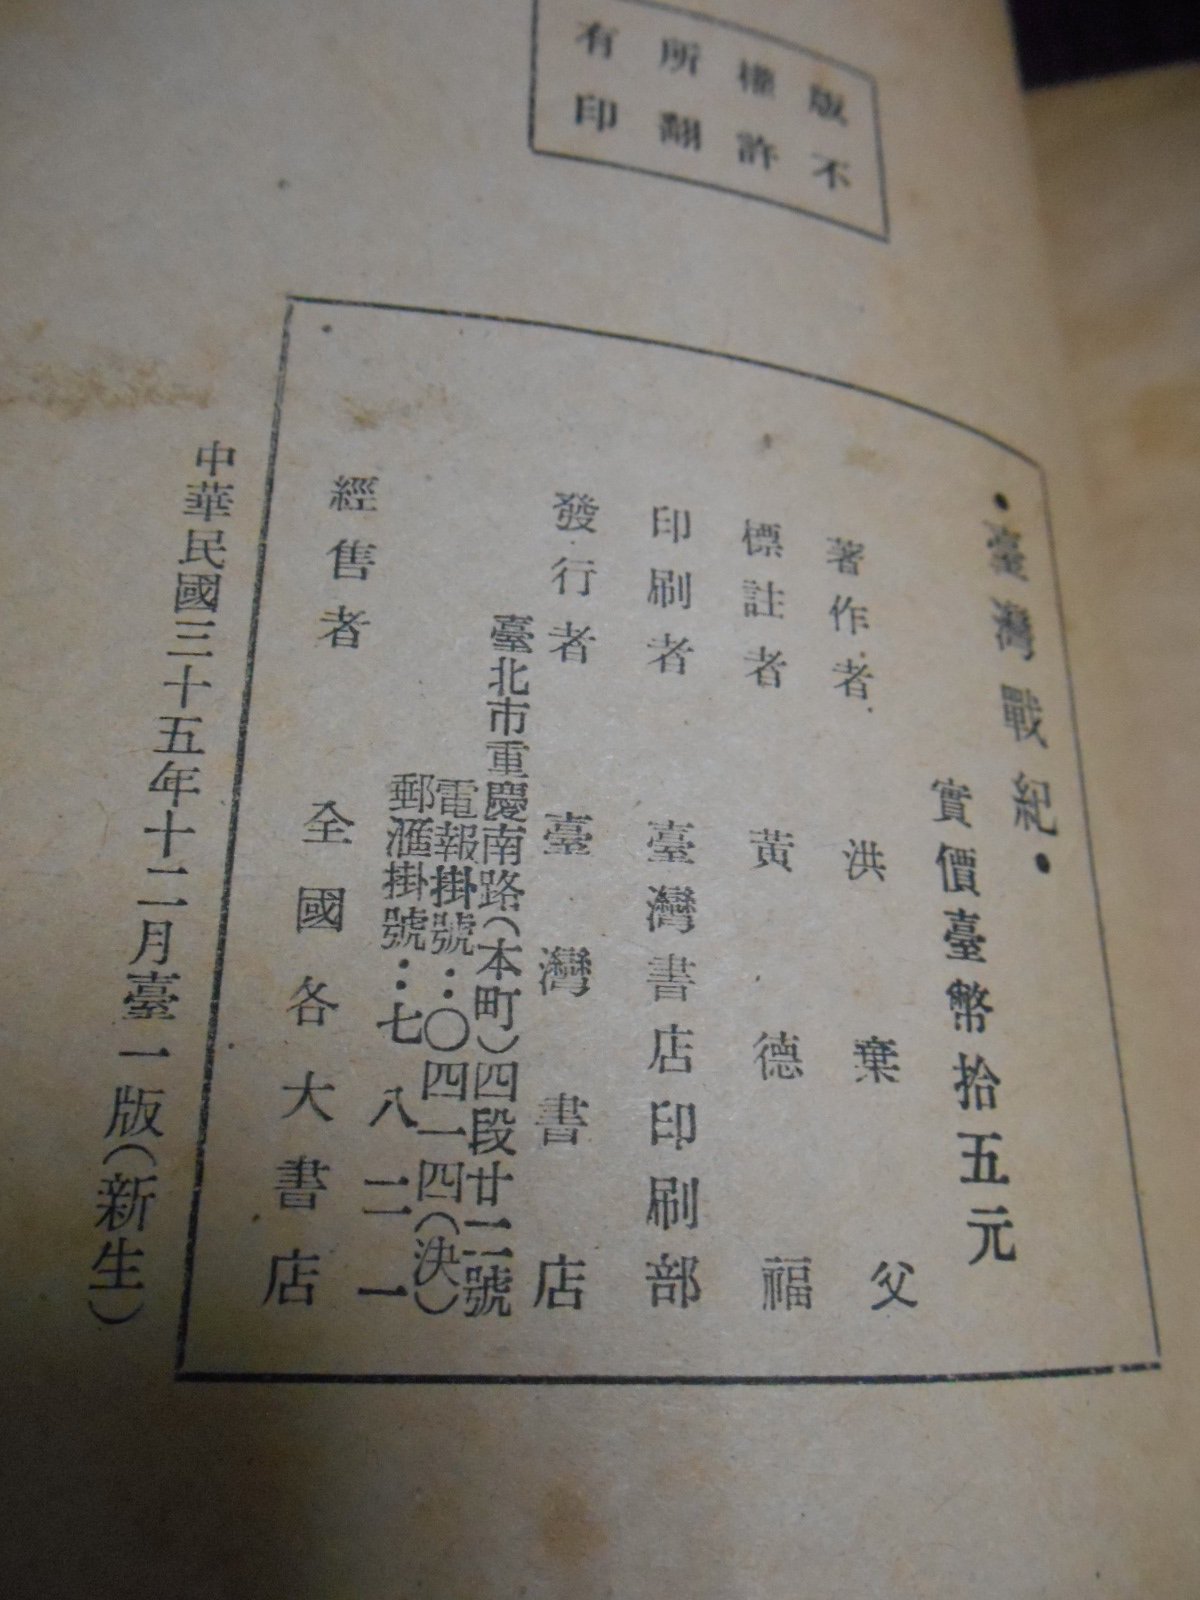 版權所有
不許翻印
•臺灣戰紀•
實價臺幣拾五元
著作者 洪棄父
標註者 黃德福
印刷者 臺灣書店印刷部
發行者 臺灣書店
臺北市重慶南路(本町)四段廿二號
電報掛號:〇四一四(決)
郵滙掛號:七八二一
經售者 全國各大書店
中華民國三十五年十二月臺一版(新生)